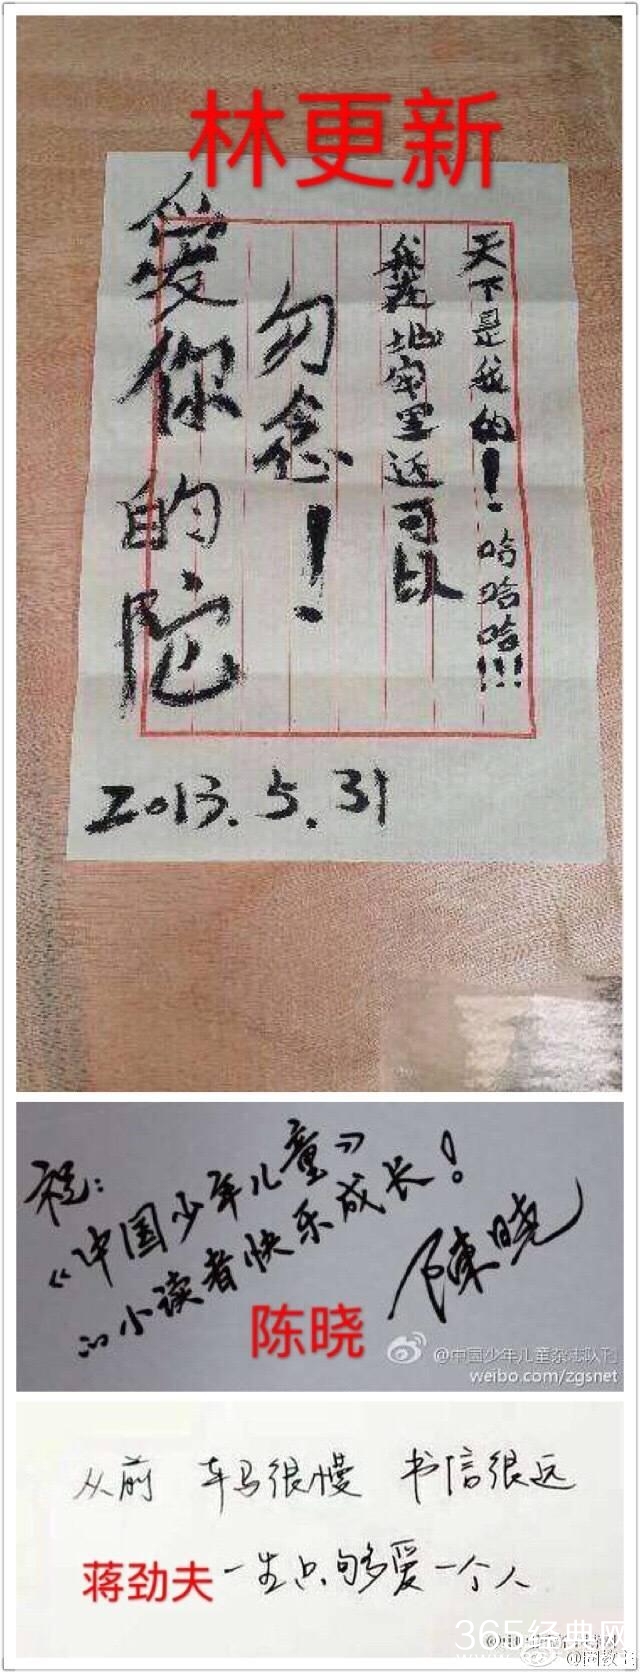 林更新
天下是我的！哈哈哈!!!
我在地牢里还可以
勿念！
爱你的陀
2013.5.31
祝：
《中国少年儿童》
的小读者快乐成长！
陈晓
陳晓
@中国少年儿童杂志队刊
weibo.com/zgsnet
从前 车马很慢 书信很远
蒋劲夫
一生只够爱一个人
365经典网